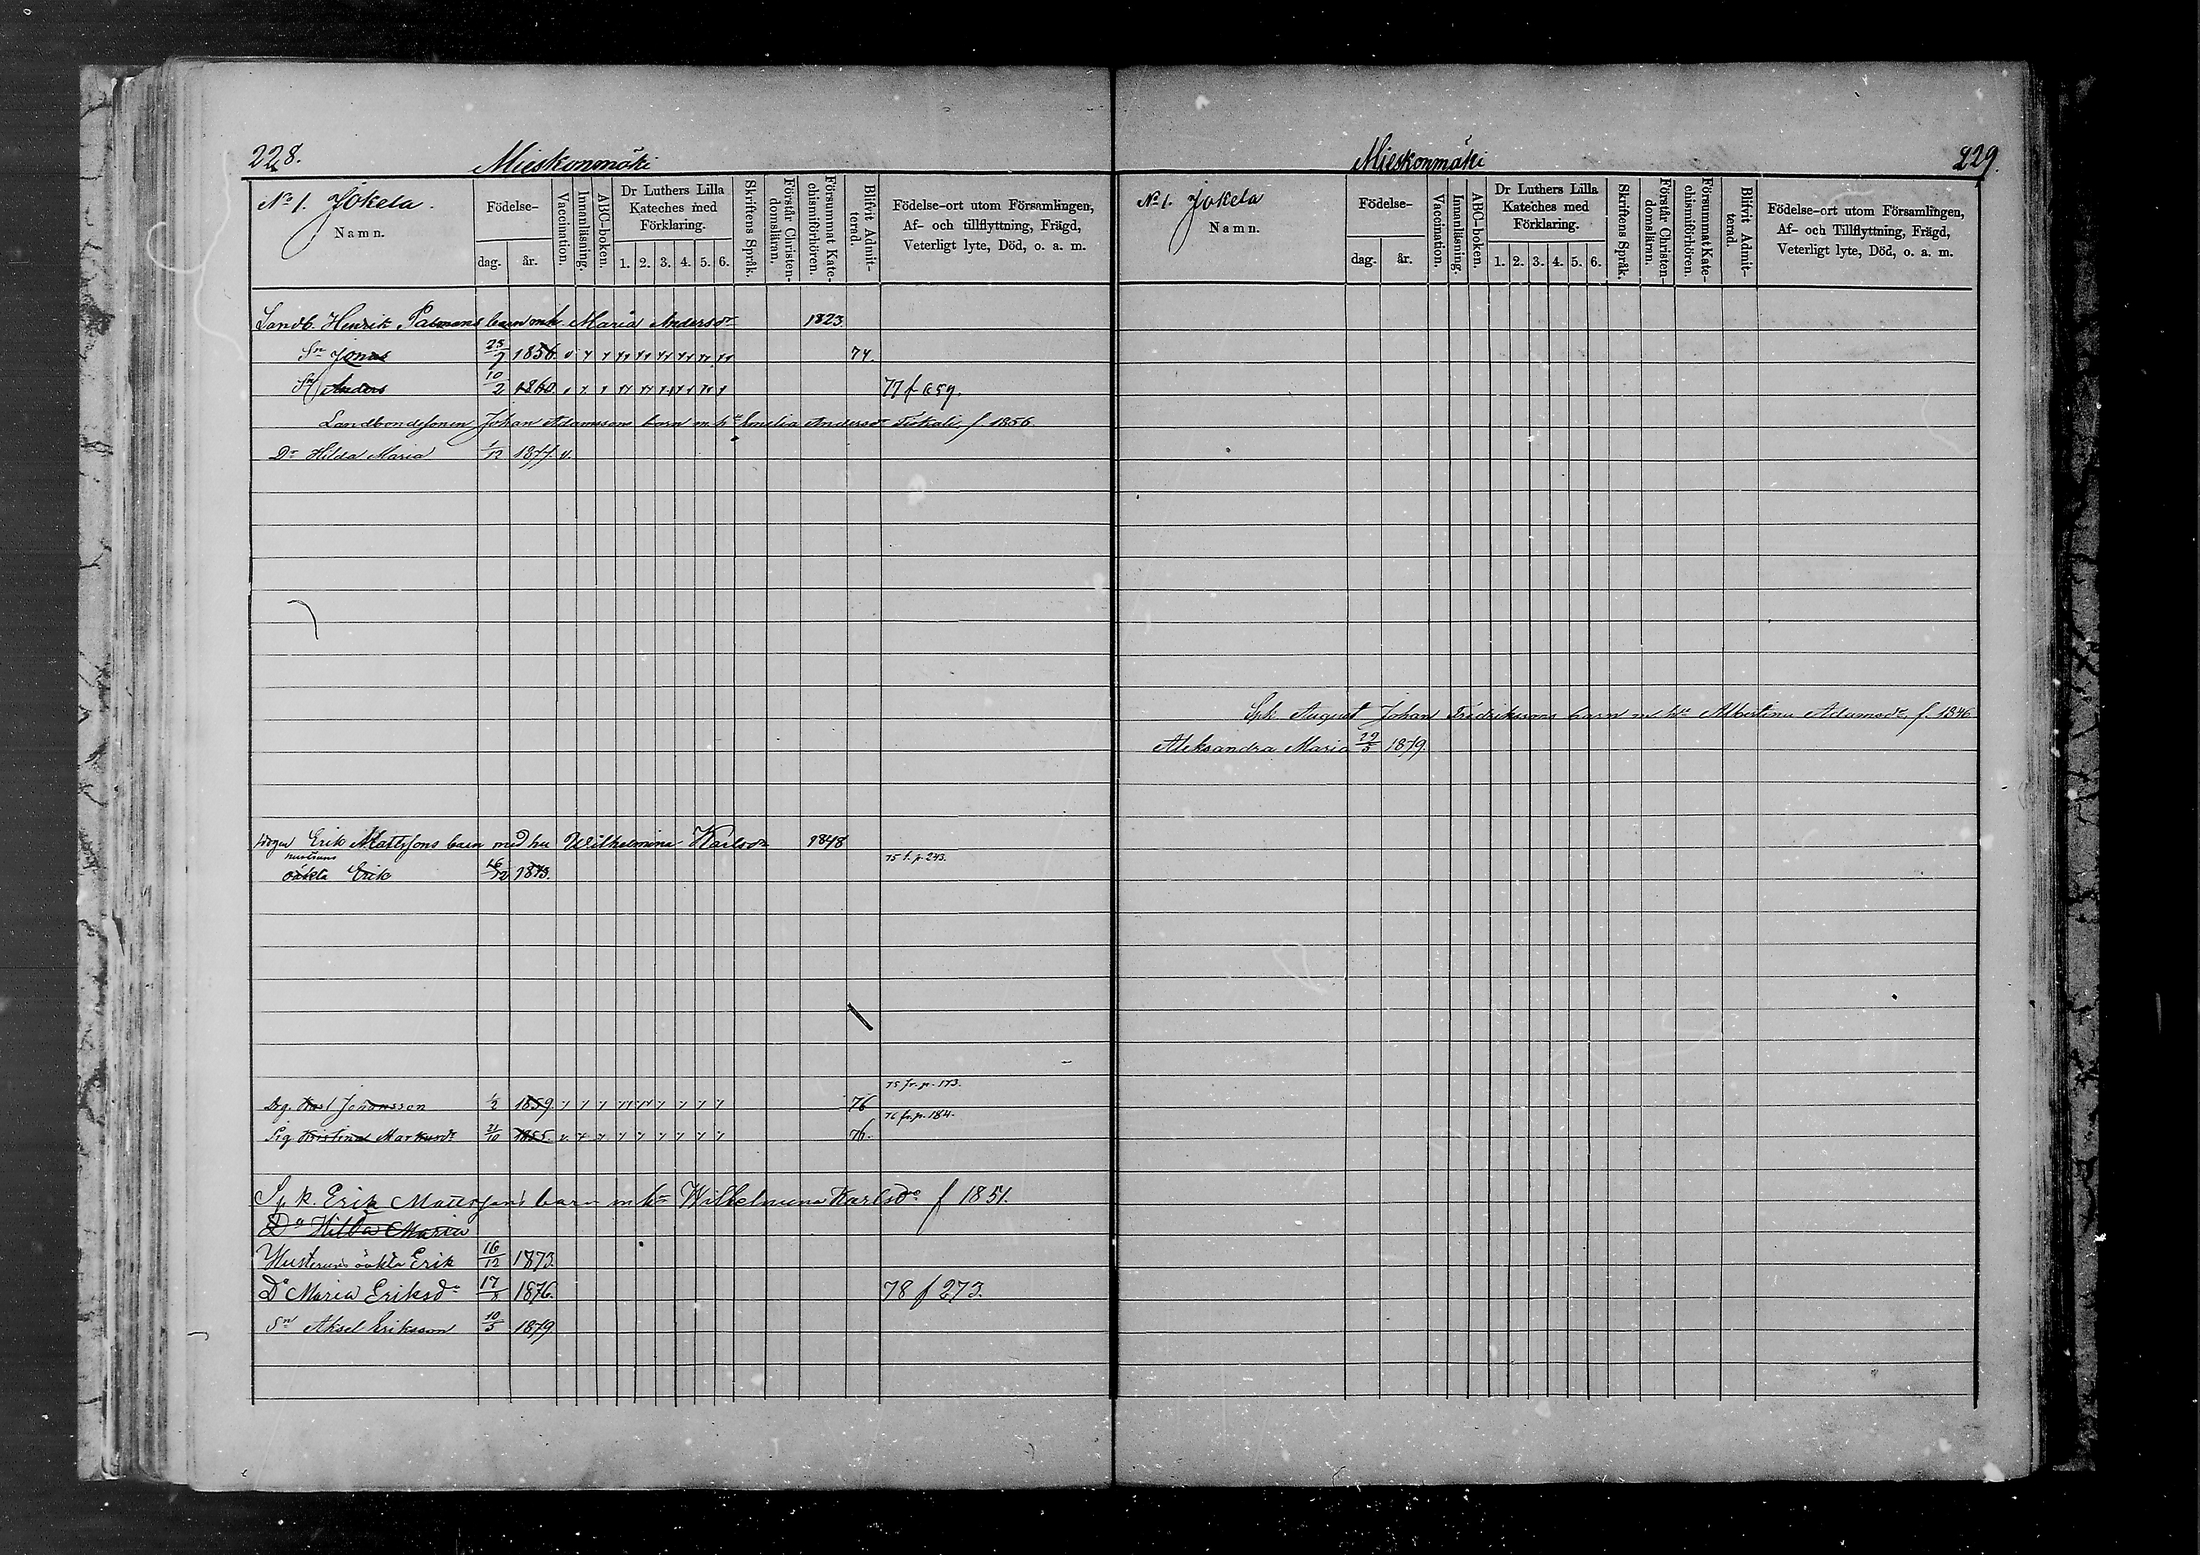 228.
Mieskonmäki
No 1. Jokela.
Namn.
Födelse-
dag. år.
Vaccination.
Innanläsning.
ABC-boken.
Dr Luthers Lilla
Kateches med
Förklaring.
1. 2. 3. 4. 5. 6.
Skriftens Språk.
Förstår Christen-
domslänn.
Försummat Kate-
chismiförhören.
Blifvit Admit-
terad.
Födelse-ort utom Församlingen,
Af- och tillflyttning, Frägd,
Veterligt lyte, Död, o. a. m.
Landb. Henrik barn mh Maria Andersdr 1823
Sn Jonas 25/7 1856. 74.
Sn Anders 10/2 1860. 77 f 659.
Landbondesonen Johan Adamssons barn m hu Andersdr f 1856
Dr Hilda Maria 1/12 1877. v.
Erik Mattssons barn med hu Wilhelmina Karlsdr 1848
hustruns
oäkta Erik 16/12 1873. 75 f. p. 243.
75 fr. p. 173.
Drg. Karl Johansson 1/2 1859 76
76 fr. p. 184.
Pig. Kristina Markusdr 21/10 1855. 76.
Spk. Erik Mattssons barn m hu Wilhelmina Karlsdr f 1851.
Dr Hilda Maria
Hustruns oäkta Erik 16/12 1873.
Dr Maria Eriksdr 17/8 1876. 78 f 273.
Sn Aksel Eriksson 10/5 1879
Mieskonmäki
229.
No 1. Jokela
Namn.
Födelse-
dag. år.
Vaccination.
Innanläsning.
ABC-boken.
Dr Luthers Lilla
Kateches med
Förklaring.
1. 2. 3. 4. 5. 6.
Skriftens Språk.
Förstår Christen-
domslänn.
Försummat Kate-
chismiförhören.
Blifvit Admit-
terad.
Födelse-ort utom Församlingen,
Af- och Tillflyttning, Frägd,
Veterligt lyte, Död, o. a. m.
Spk August Johan Fredrikssons barn m hu Albertina Adamsdr f. 1846
Aleksandra Maria 29/5 1879.